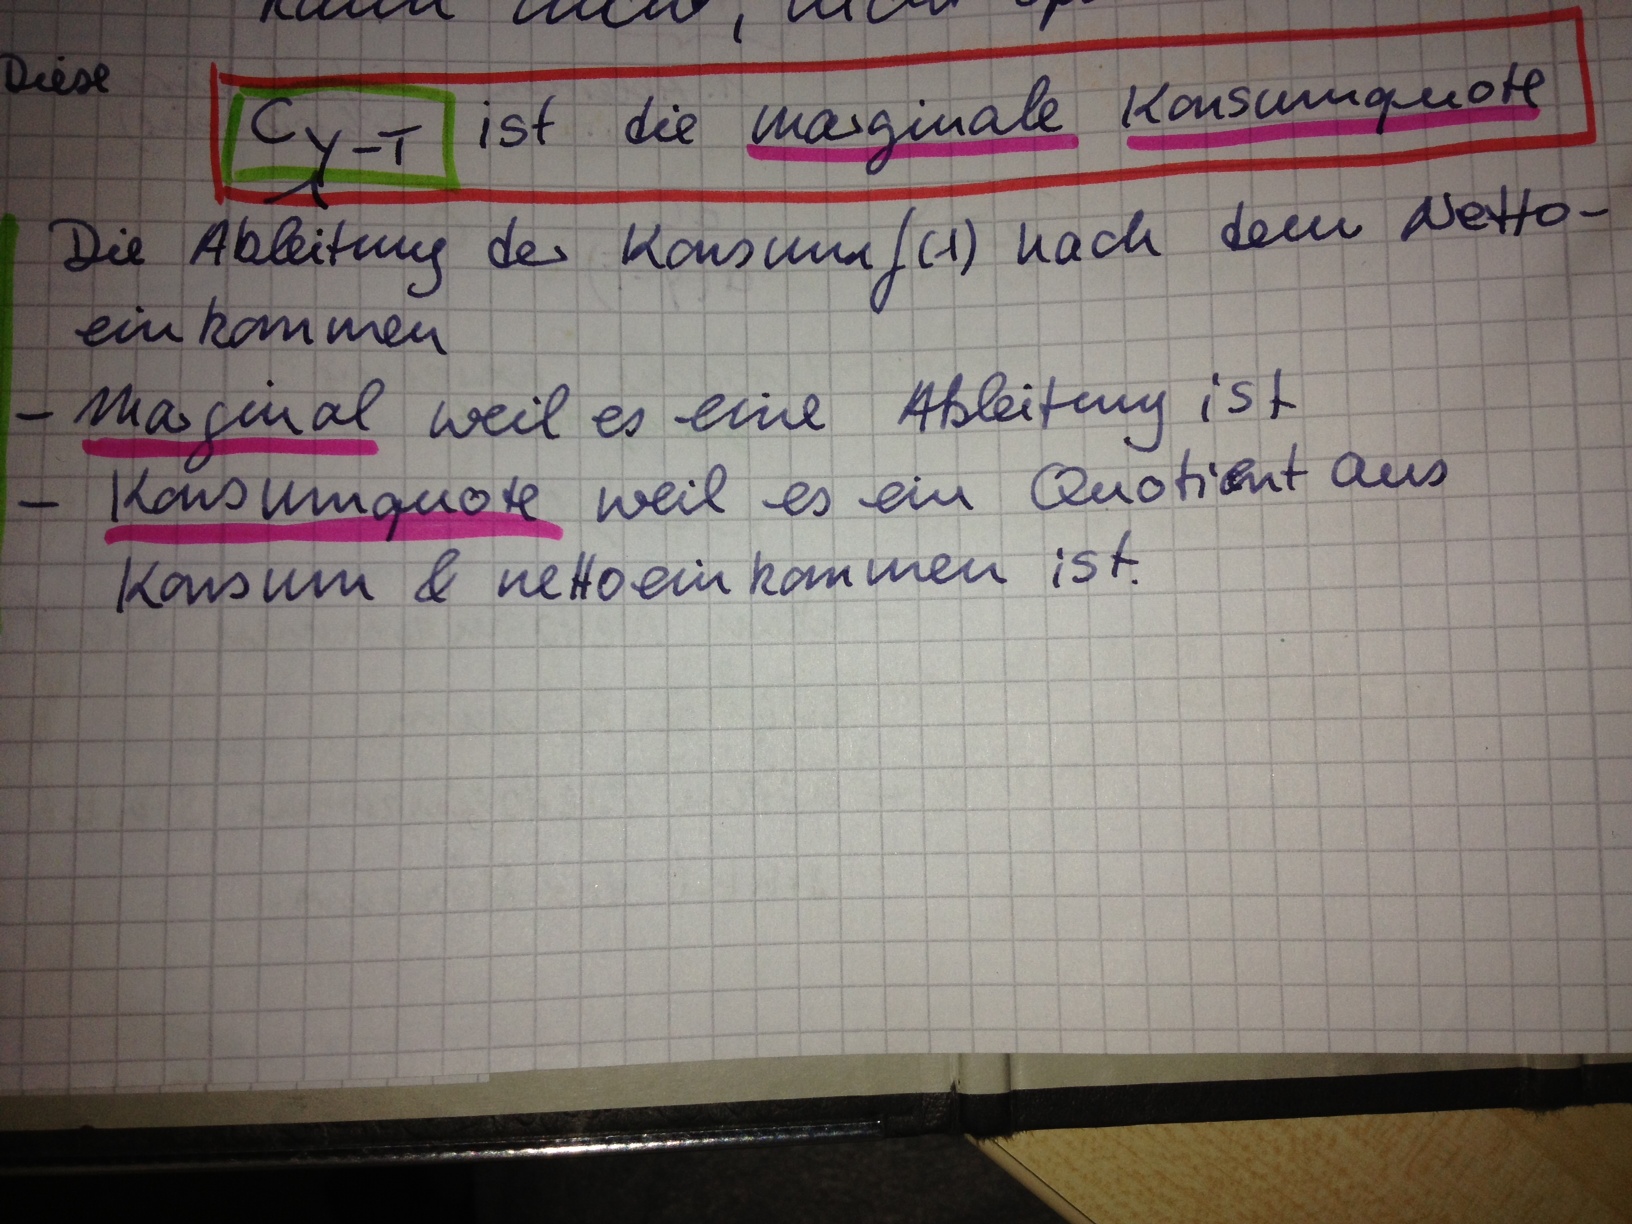 Diese
C Y-T ist die marginale Konsumquote
Die Ableitung der Konsumf(1) nach dem Netto-
einkommen
- Marginal weil es eine Ableitung ist
- Konsumquote weil es ein Quotient aus
Konsum & nettoeinkommen ist.